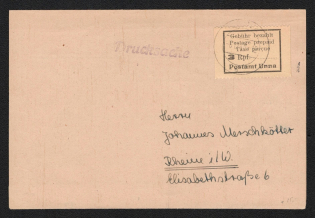 Drucksache
Gebühr bezahlt
Postage prepaid
Taxe perçue
Rpf.
Postamt Unna
Herrn
Johannes Merschkötter
Rheine i/W.
Elisabethstraße 6